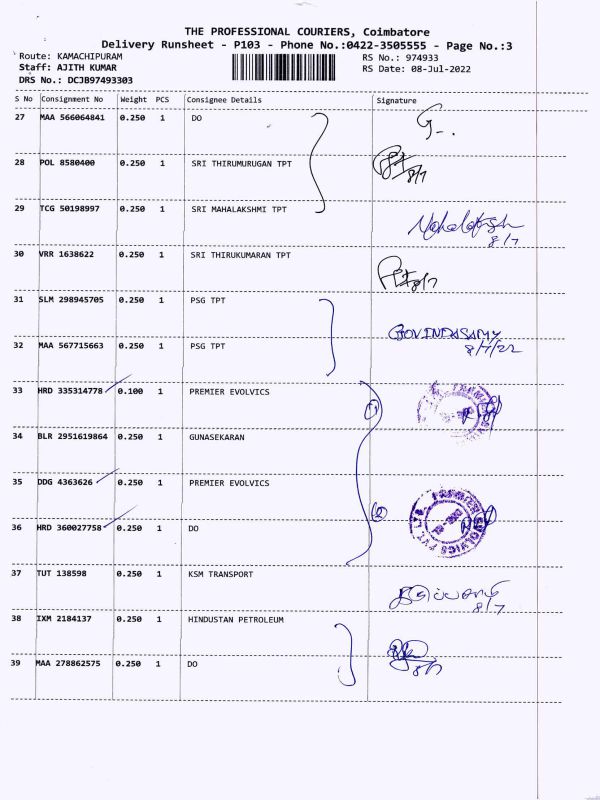 THE PROFESSIONAL COURIERS, Coimbatore
Delivery Runsheet - P103 - Phone No.:0422-3505555 - Page No.:3
Route: KAMACHIPURAM RS No.: 974933
Staff: AJITH KUMAR RS Date: 08-Jul-2022
DRS No.: DCJB97493303
S No Consignment No Weight PCS Consignee Details Signature
27 MAA 566064841 0.250 1 DO
28 POL 8580400 0.250 1 SRI THIRUMURUGAN TPT
8/7
29 TCG 50198997 0.250 1 SRI MAHALAKSHMI TPT
8/7
30 VRR 1638622 0.250 1 SRI THIRUKUMARAN TPT
8/7
31 SLM 298945705 0.250 1 PSG TPT
GOVINDASAMY
32 MAA 567715663 0.250 1 PSG TPT 8/7/22
33 HRD 335314778 0.100 1 PREMIER EVOLVICS
34 BLR 2951619864 0.250 1 GUNASEKARAN
35 DDG 4363626 0.250 1 PREMIER EVOLVICS
36 HRD 360027758 0.250 1 DO
PREMIER EVOLVICS PVT. LTD
37 TUT 138598 0.250 1 KSM TRANSPORT
8/7
38 IXM 2184137 0.250 1 HINDUSTAN PETROLEUM
39 MAA 278862575 0.250 1 DO
8/7